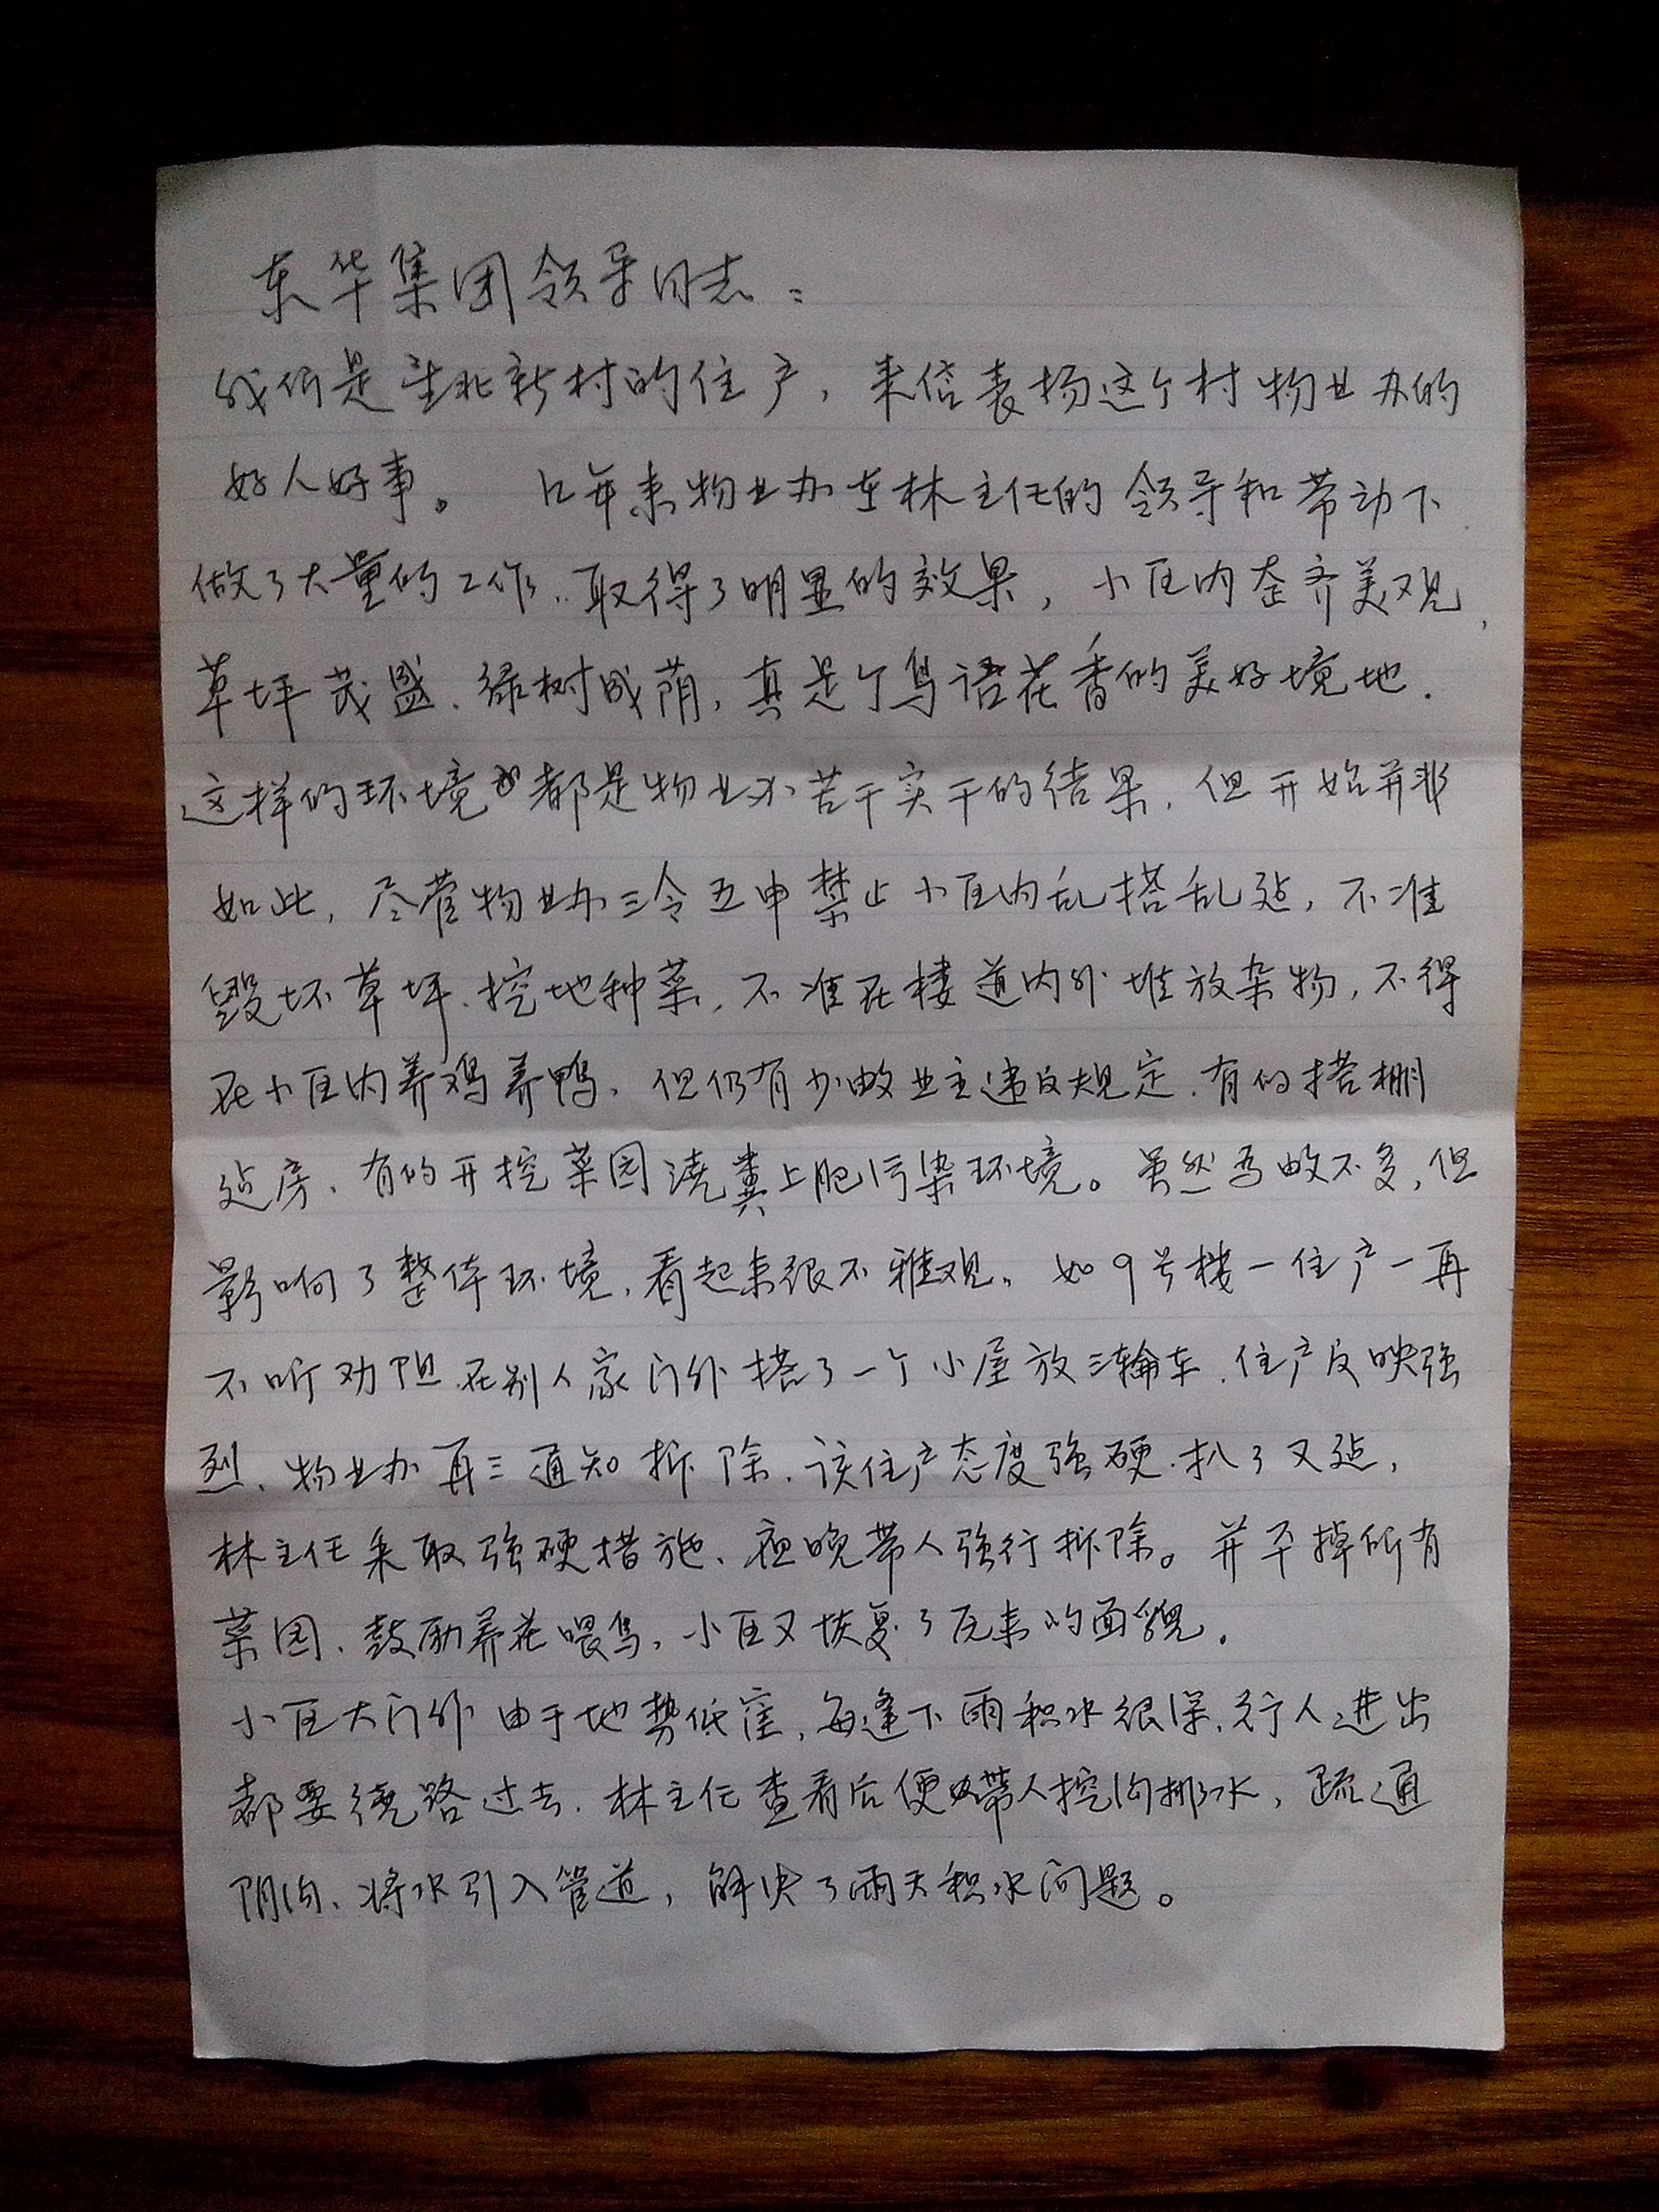 东华集团领导同志：
我们是淮北新村的住户，来信表扬这个村物业办的
好人好事。 几年来物业办在林主任的领导和带动下
做了大量的工作．取得了明显的效果，小区内整齐美观，
草坪茂盛、绿树成荫，真是个鸟语花香的美好境地．
这样的环境都是物业办苦干实干的结果．但开始并非
如此，尽管物业办三令五申禁止小区内乱搭乱建，不准
毁坏草坪、挖地种菜，不准在楼道内外堆放杂物，不得
在小区内养鸡养鸭、但仍有少数业主违反规定．有的搭棚
建房、有的开挖菜园浇粪上肥污染环境。虽然为数不多，但
影响了整体环境，看起来很不雅观。如9号楼一住户一再
不听劝阻．在别人家门外搭了一个小屋放三轮车．住户反映强
烈、物业办再三通知拆除．该住户态度强硬．扒了又建，
林主任采取强硬措施、夜晚带人强行拆除。并平掉所有
菜园、鼓励养花喂鸟，小区又恢复了原来的面貌．
小区大门外由于地势低洼，每逢下雨积水很深．行人进出
都要绕路过去．林主任查看后便带人挖沟排水，疏通
阴沟、将水引入管道，解决了雨天积水问题。